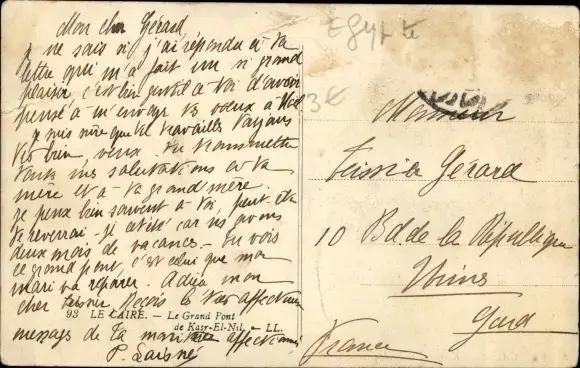 Mon cher Gérard
je ne sais si j'ai répondu à ta
lettre qui m'a fait un si grand
plaisir, c'est bien gentil à toi d'avoir
pensé à m'envoyer tes voeux à Noël
je suis sûre que tu travailles toujours
très bien, veux-tu transmettre
toutes mes salutations à ta
mère et à ta grand mère.
je pense bien souvent à toi, peut-être
te reverrai-je cet été car nous avons
deux mois de vacances - Tu vois
ce grand pont, c'est celui que mon
mari va réparer. Adieu mon
cher Reçois le très affectueux
93 LE CAIRE. — Le Grand Pont
de Kasr-El-Nil. — LL.
messages de ta affectionnée
P. Laisné
Egypte
3€
Monsieur
Teissier Gérard
10 Bd. de la République
Nîmes
Gard
France